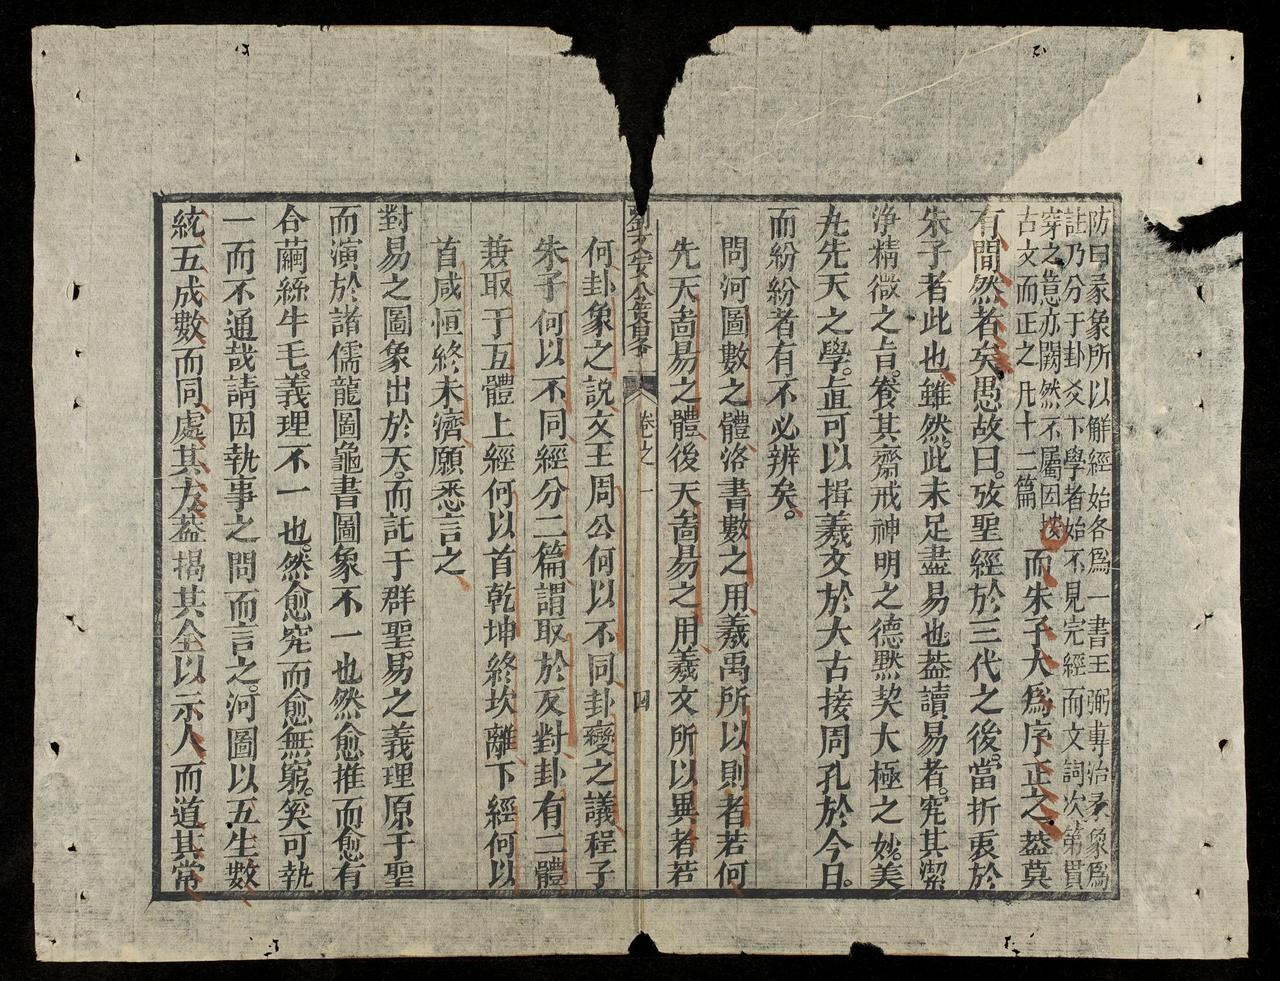 防曰彖象所以解經始各爲一書王弼專治彖象爲
註乃分于卦爻下學者始不見完經而文詞次第貫
穿之意亦闕然不屬因
古文而正之凡十二篇
而朱子大爲序正之蓋莫
有間然者矣愚故曰攷聖經於三代之後當折衷於
朱子者此也雖然此未足盡易也蓋讀易者究其潔
淨精微之旨養其齋戒神明之德黙契大極之妙美
先天之學直可以揖羲文於大古接周孔於今日
而紛紛者有不必辨矣
問河圖數之體洛書數之用羲禹所以則者若何
先天啚易之體後天啚易之用羲文所以異者若
劉文安公策畧
卷之一
四
何卦象之說文王周公何以不同卦變之議程子
朱子何以不同經分二篇謂取於反對卦有二體
兼取于互體上經何以首乾坤終坎離下經何以
首咸恒終未濟願悉言之
對易之圖象出於天而託于群聖易之義理原于聖
而演於諸儒龍圖龜書圖象不一也然愈推而愈有
合繭絲牛毛義理不一也然愈究而愈無窮奚可執
一而不通哉請因執事之問而言之河圖以五生數
統五成數而同處其方蓋揭其全以示人而道其常